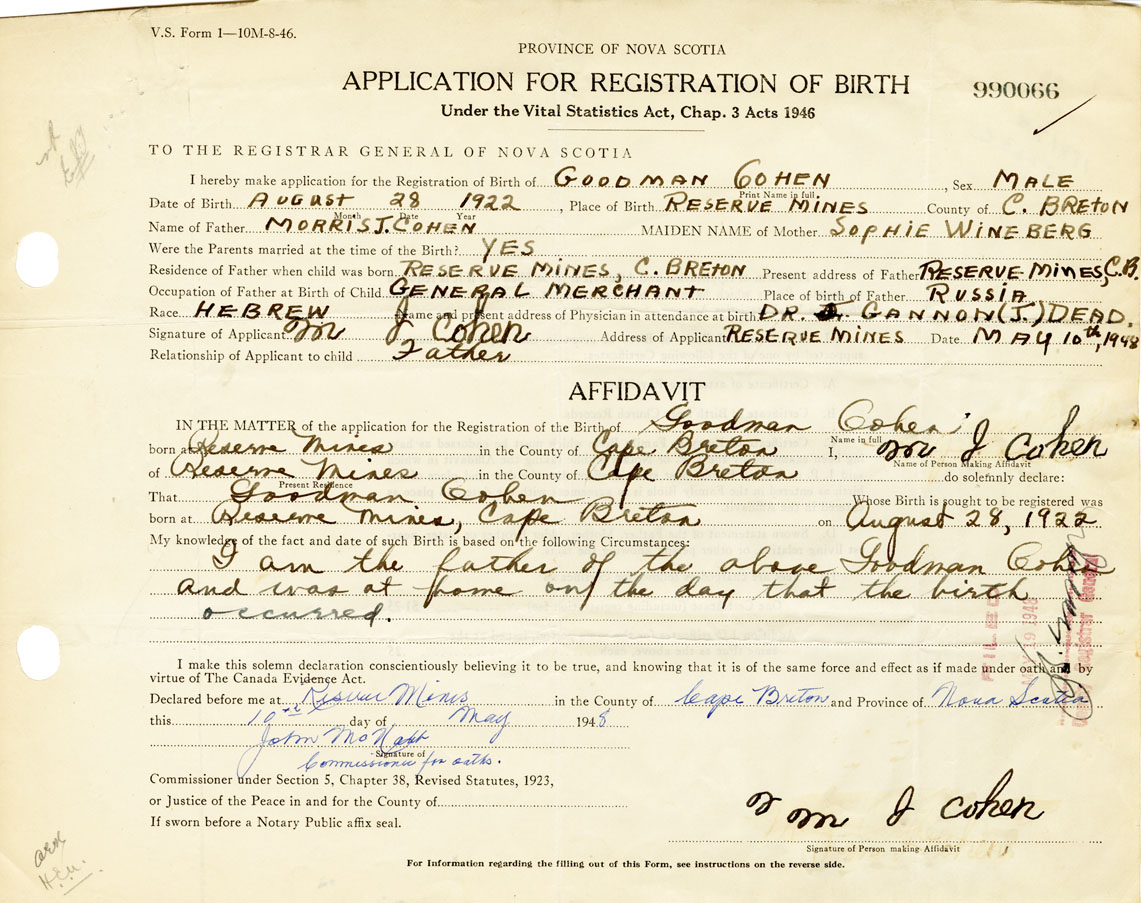 V.S. Form 1—10M-8-46.
PROVINCE OF NOVA SCOTIA
APPLICATION FOR REGISTRATION OF BIRTH
990066
Under the Vital Statistics Act, Chap. 3 Acts 1946
TO THE REGISTRAR GENERAL OF NOVA SCOTIA
I hereby make application for the Registration of Birth of GOODMAN COHEN, Sex MALE
Print Name in full
Date of Birth AUGUST 28 1922, Place of Birth RESERVE MINES County of C. BRETON
Month Date Year
Name of Father MORRIS J. COHEN MAIDEN NAME of Mother SOPHIE WINEBERG
Were the Parents married at the time of the Birth? YES
Residence of Father when child was born RESERVE MINES, C. BRETON Present address of Father RESERVE MINES, C.B.
Occupation of Father at Birth of Child GENERAL MERCHANT Place of birth of Father RUSSIA
Race HEBREW Name and present address of Physician in attendance at birth DR. GANNON (J.) DEAD.
Signature of Applicant M J Cohen Address of Applicant RESERVE MINES Date MAY 10th, 1948
Relationship of Applicant to child Father
AFFIDAVIT
IN THE MATTER of the application for the Registration of the Birth of Goodman Cohen
Name in full
born at Reserve Mines in the County of Cape Breton I, M J Cohen
Name of Person Making Affidavit
of Reserve Mines in the County of Cape Breton do solemnly declare:
Present Residence
That Goodman Cohen Whose Birth is sought to be registered was
born at Reserve Mines, Cape Breton on August 28, 1922
My knowledge of the fact and date of such Birth is based on the following Circumstances:
I am the father of the above Goodman Cohen
and was at home on the day that the birth
occurred.
FILED
19 1948
I make this solemn declaration conscientiously believing it to be true, and knowing that it is of the same force and effect as if made under oath and by
virtue of The Canada Evidence Act.
Declared before me at Reserve Mines in the County of Cape Breton and Province of Nova Scotia
this 10th day of May 1948
John McNabb
Signature of
Commissioner for oaths.
Commissioner under Section 5, Chapter 38, Revised Statutes, 1923,
or Justice of the Peace in and for the County of
If sworn before a Notary Public affix seal.
M J Cohen
Signature of Person making Affidavit
For Information regarding the filling out of this Form, see instructions on the reverse side.